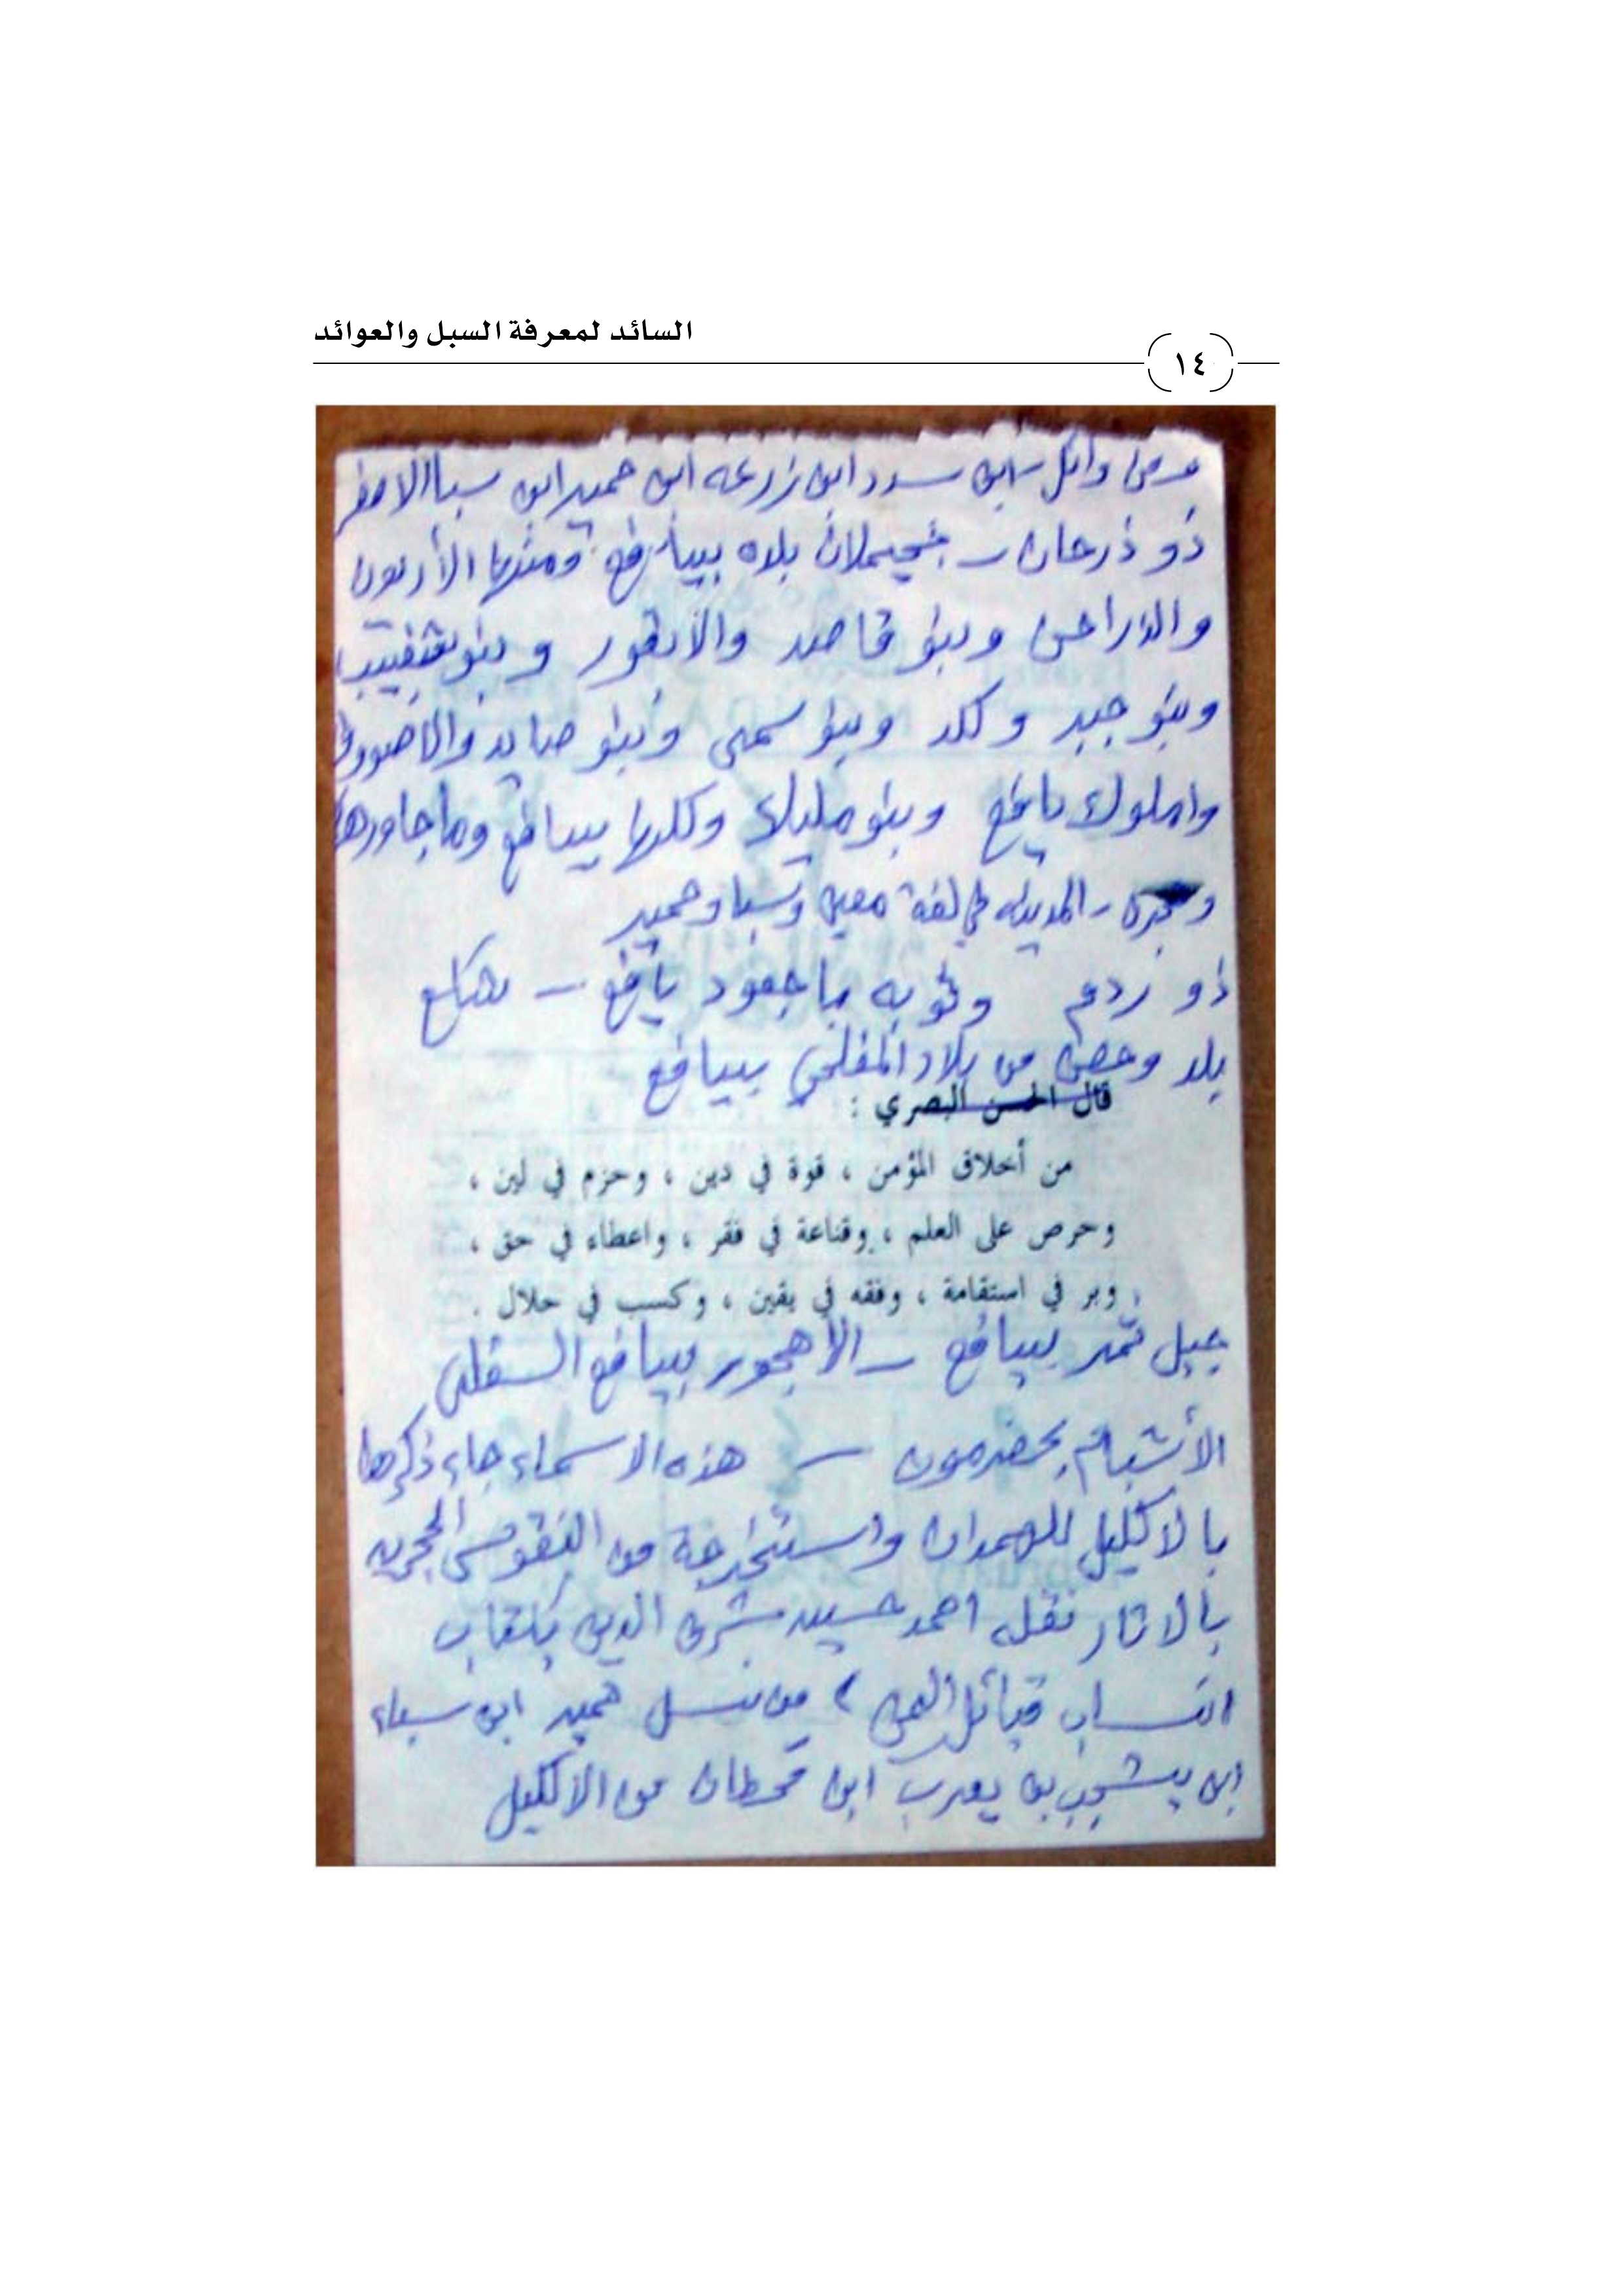 السائد لمعرفة السبل والعوائد
١٤
وائل ابن سدد ابن زرعه ابن حمير ابن سبأ الاصغر
ذو ذرحان – بلاه بيافع ومنها
والذراحن وبنو قاصد والأبقور وبنو
وبنو جبر وكلد وبنو سمي وبنو صايد
يافع وبنو مليك وكلها بيافع وما جاورها
– المدينه في لغة معين وسبا وحمير
ذو ردم يافع –
بلد وحصن من بلاد المفلحي بيافع
قال الحسن البصري :
من أخلاق المؤمن ، قوة في دين ، وحزم في لين ،
وحرص على العلم ، وقناعة في فقر ، واعطاء في حق ،
وبر في استقامة ، وفقه في يقين ، وكسب في حلال .
جبل ثمر بيافع – الأهجور بيافع السفلى
بحضرموت – هذه الاسماء جاء ذكرها
بالاكليل للهمدان واستخرجة من النقوس الحجريه
بالاثار نقله احمد حسين شرف الدين بكتاب
انساب قبائل اليمن ) من نسل حمير ابن سباء
ابن يشجب بن يعرب ابن قحطان من الاكليل